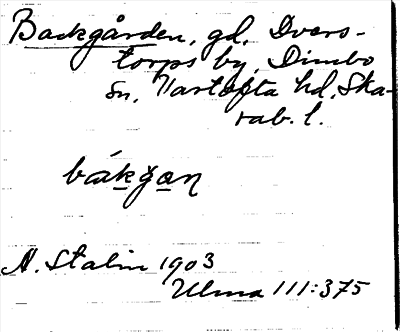 Backgården, gd, Dvers-
torps by, Dimbo
sn, Vartofta hd, Ska-
rab. l.
bákǧan
A. Stalin 1903
Ulma 111:375